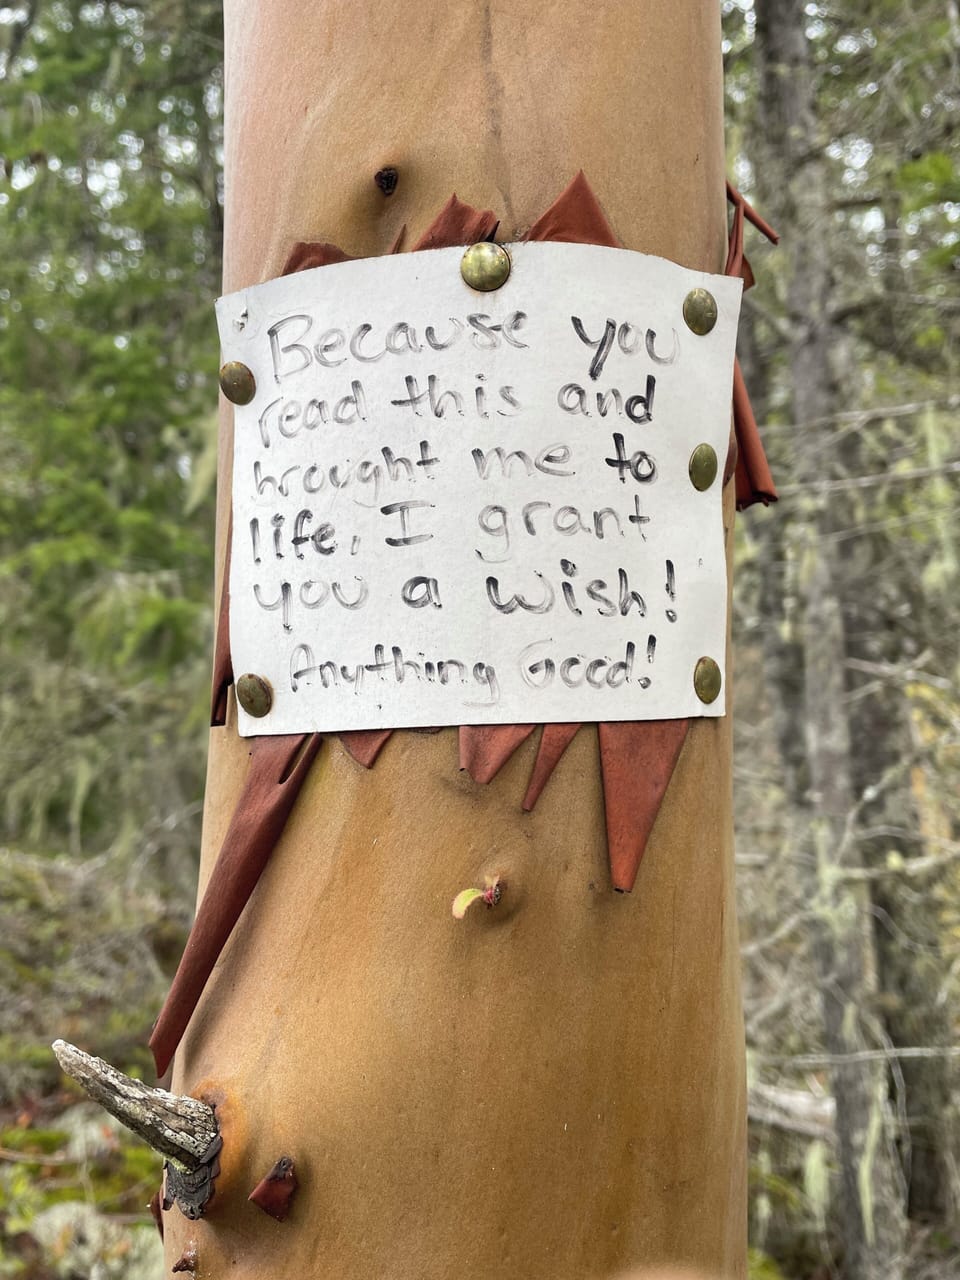 Because you
read this and
brought me to
life, I grant
you a wish!
Anything Good!